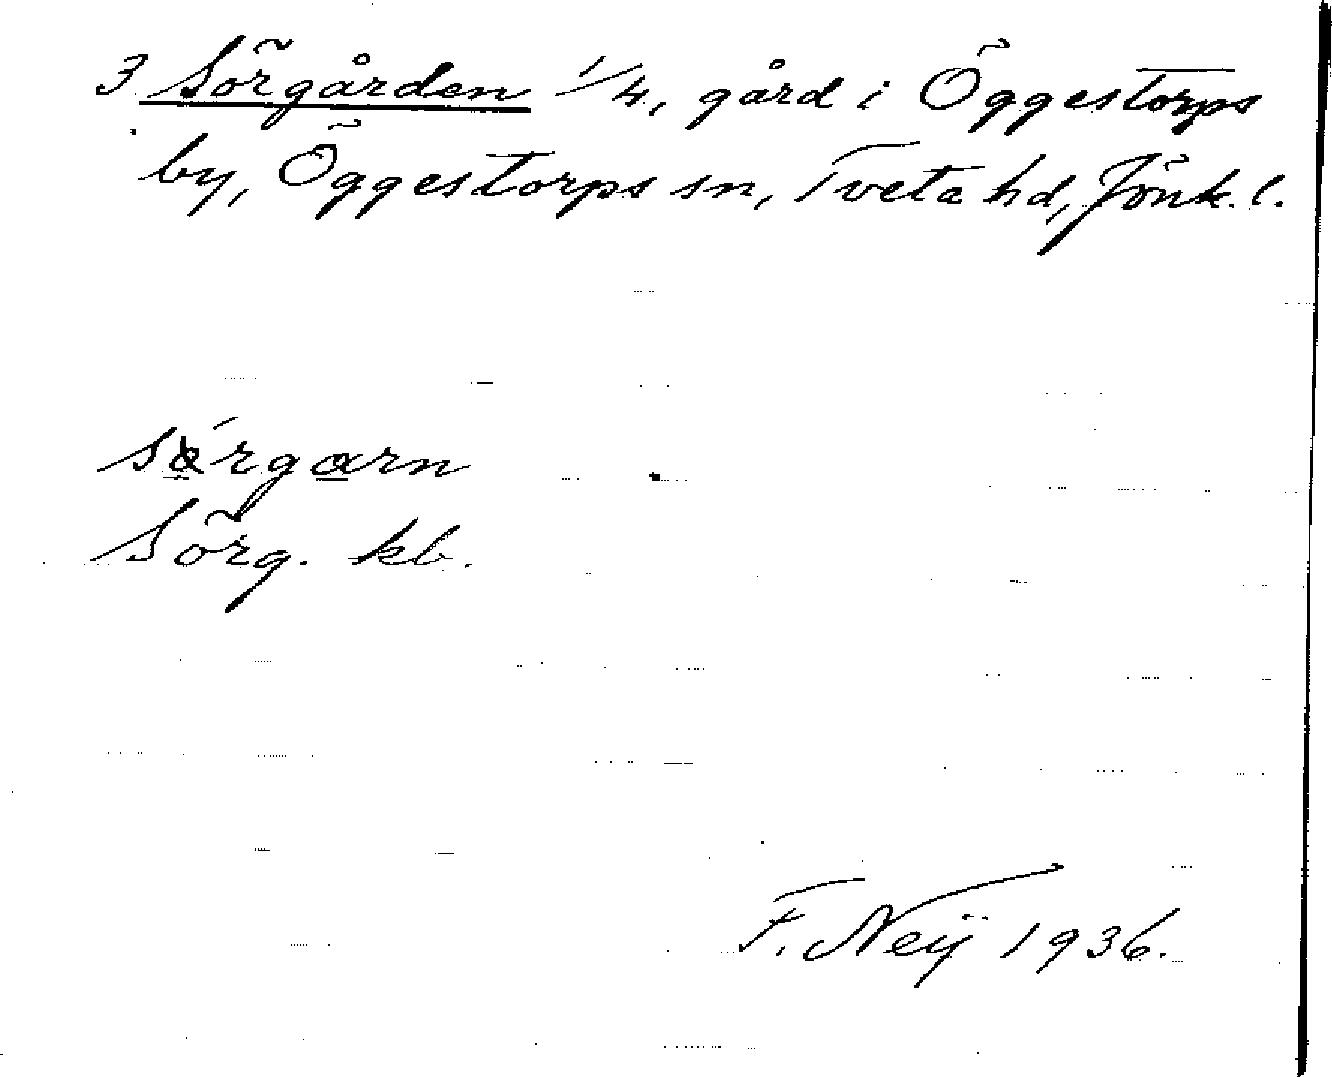 3 Sörgården 1/4, gård i Öggestorps
by, Öggestorps sn, Tveta hd, Jönk. l.
Sörg. kb.
F. Neÿ 1936.